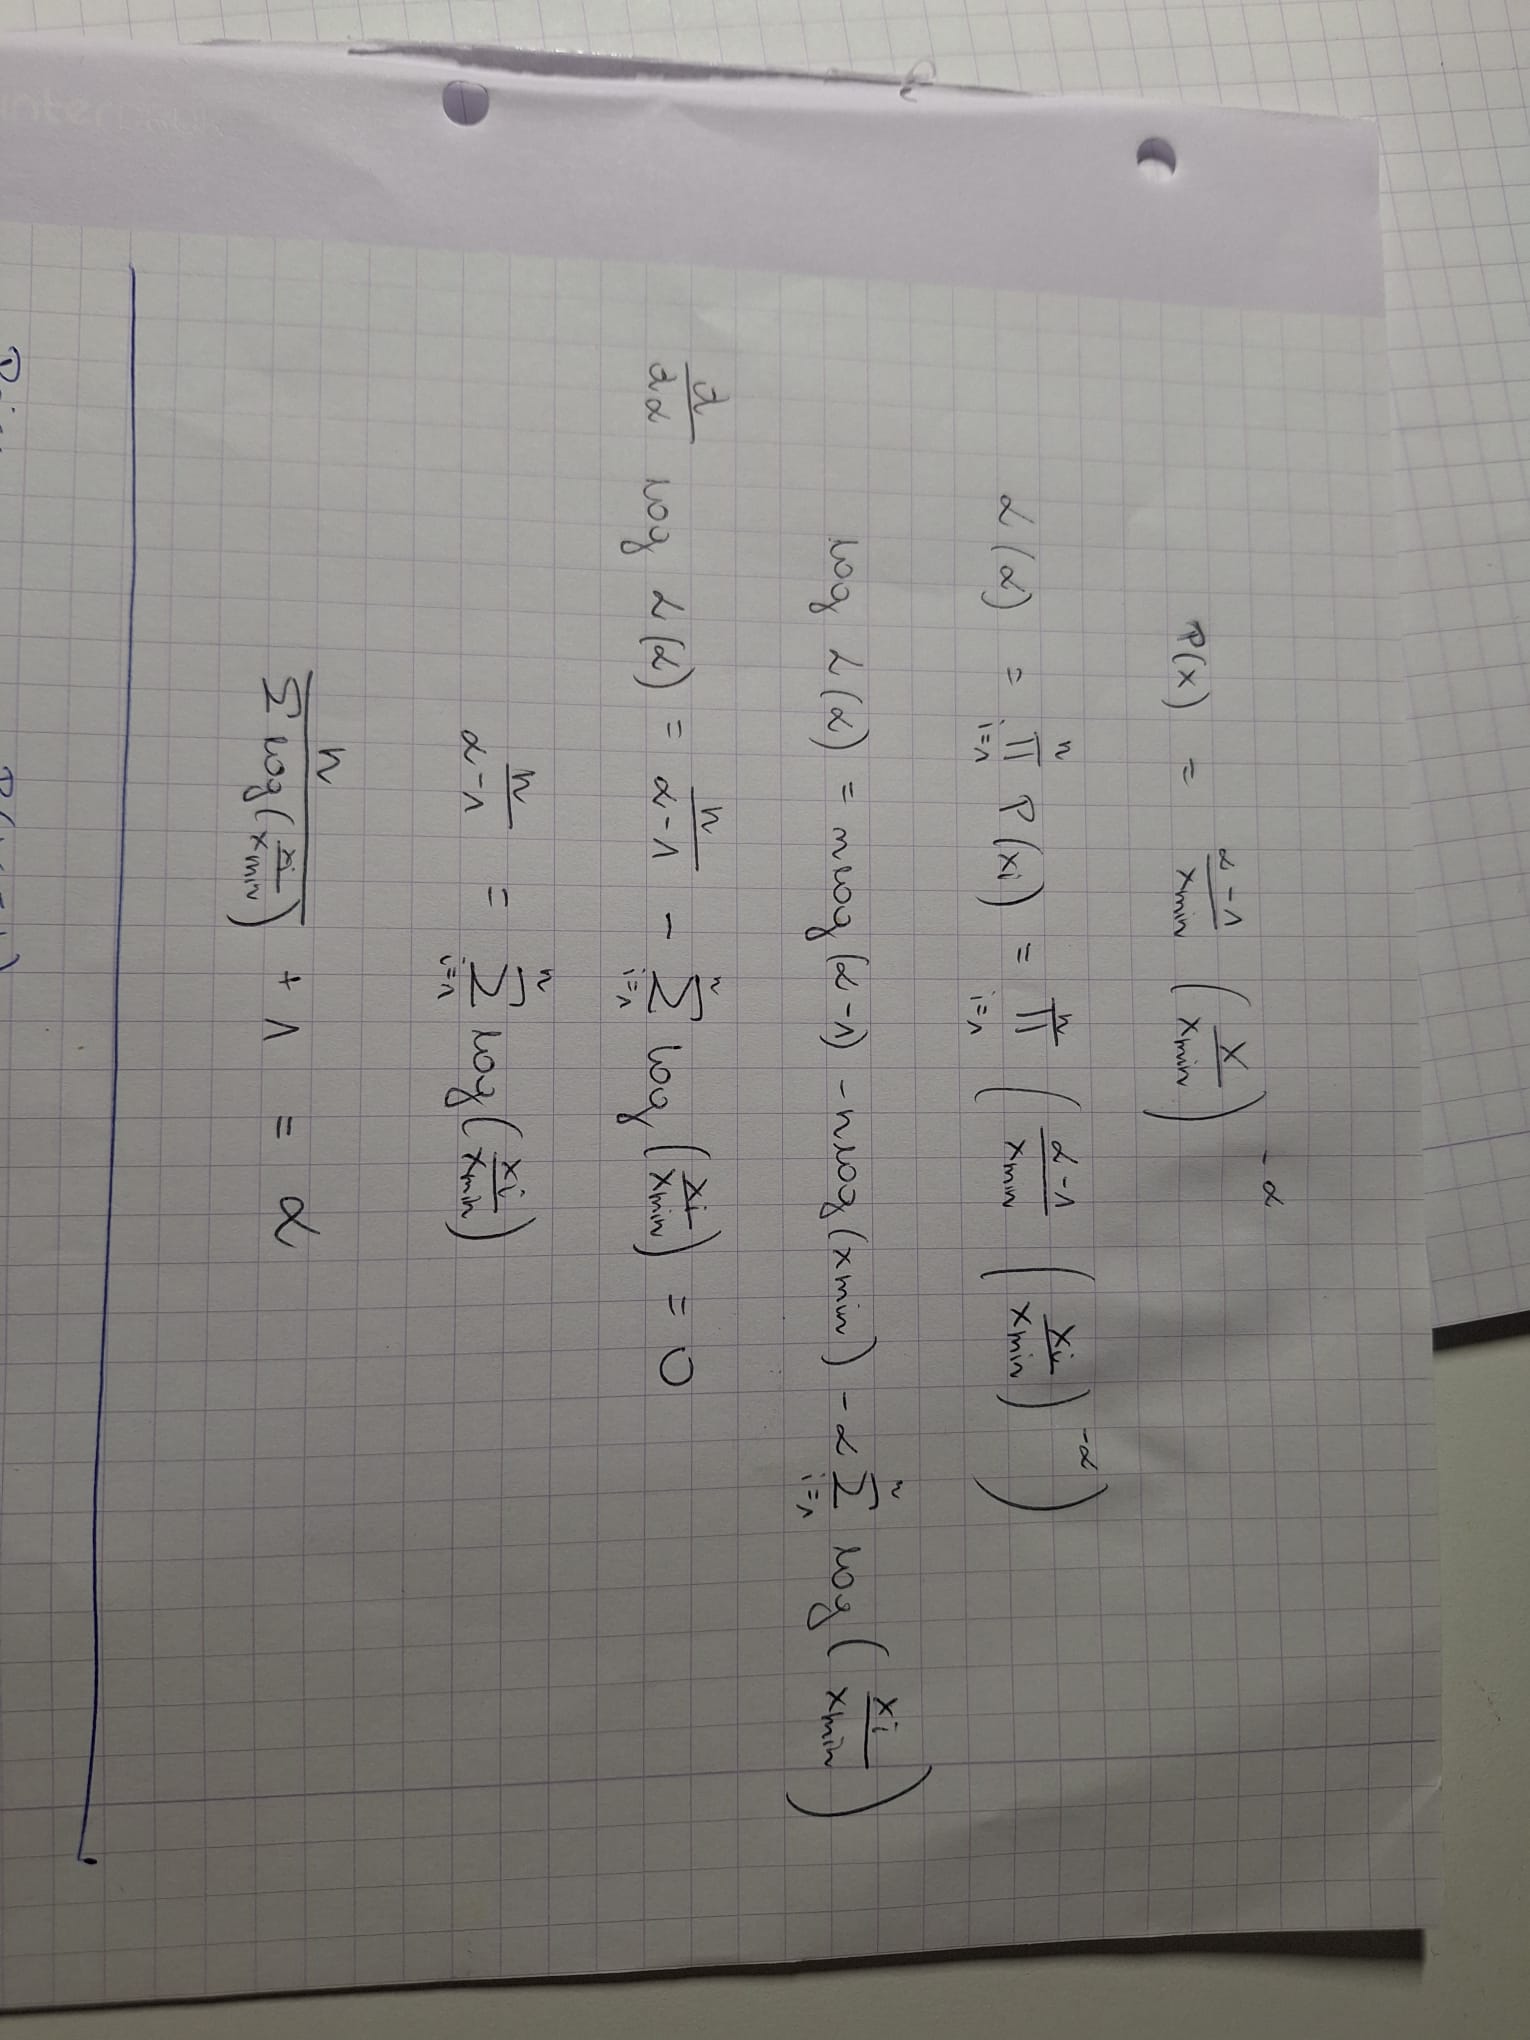 P(x) = \frac{α-1}{x_{min}} \left( \frac{x}{x_{min}} \right)^{-α}
L(α) = \prod_{i=1}^{n} P(x_i) = \prod_{i=1}^{n} \left( \frac{α-1}{x_{min}} \left( \frac{x_i}{x_{min}} \right)^{-α} \right)
log L(α) = n log(α-1) - n log(x_{min}) - α \sum_{i=1}^{n} log \left( \frac{x_i}{x_{min}} \right)
\frac{∂}{∂α} log L(α) = \frac{n}{α-1} - \sum_{i=1}^{n} log \left( \frac{x_i}{x_{min}} \right) = 0
\frac{n}{α-1} = \sum_{i=1}^{n} log \left( \frac{x_i}{x_{min}} \right)
\frac{n}{\sum log \left( \frac{x_i}{x_{min}} \right)} + 1 = α